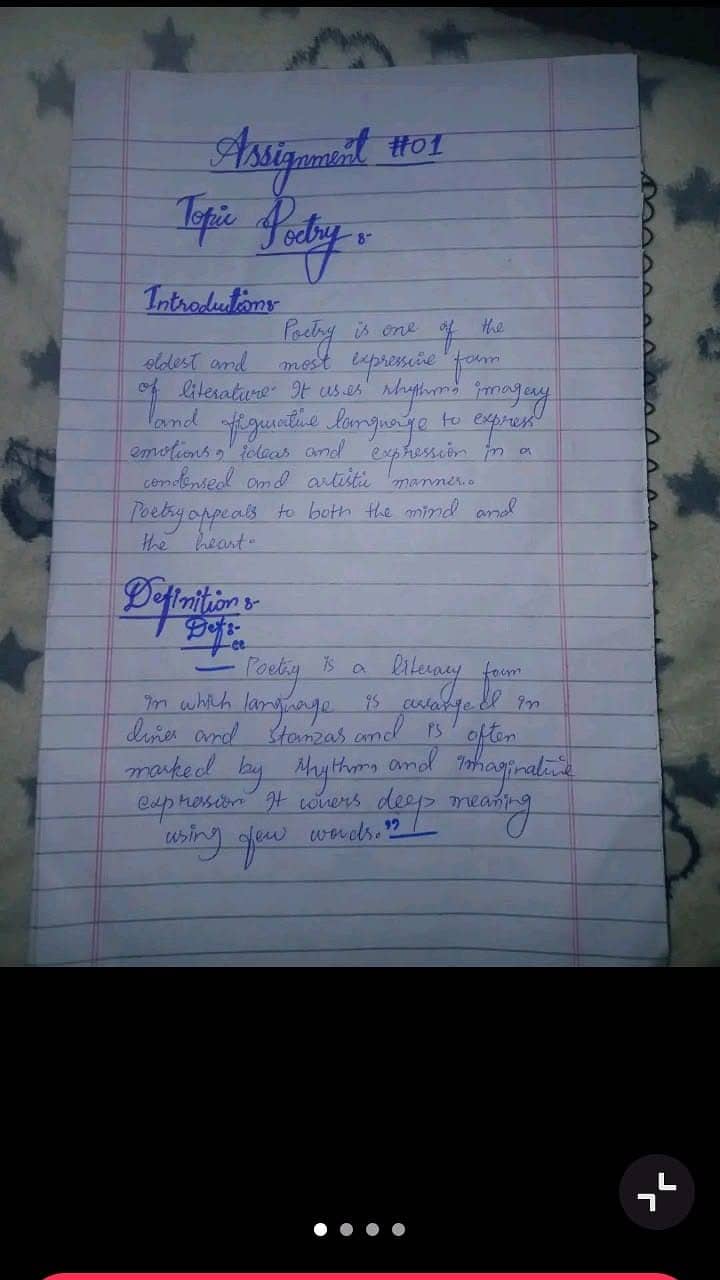 Assignment #01
Topic Poetry :-
Introduction:-
Poetry is one of the
oldest and most expressive form
of literature. It uses rhythm, imagery
and figurative language to express
emotions, ideas and expression in a
condensed and artistic manner.
Poetry appeals to both the mind and
the heart.
Definition :-
Def:-
“ Poetry is a literary form
in which language is arranged in
lines and stanzas and is often
marked by rhythm, and imaginative
expression It covers deep meaning
using few words.”